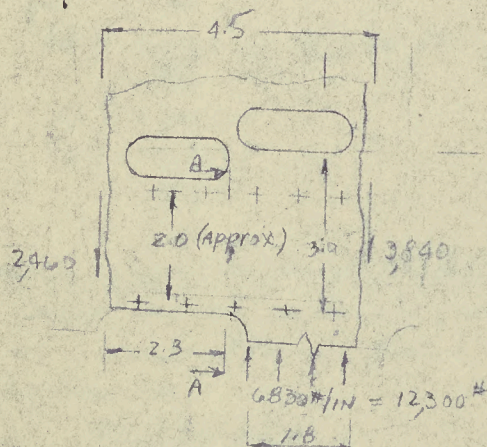 4.5
A
2.0 (Approx.)
3.0
2,460
9,840
2.3
A
6830#/IN = 12,300#
1.8